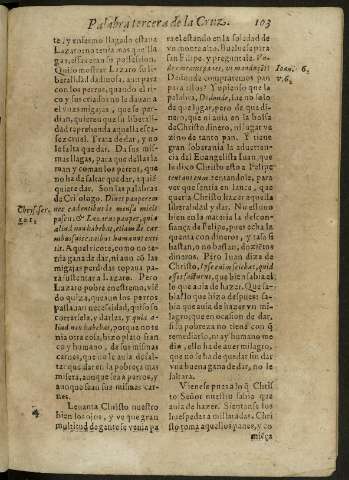 Palabra tercera de la Cruz. 103
te, y enfermo llagado estaua
Lazaro: no tenia mas que lla-
gas, essas eran su possession.
Quiso mostrar Lazaro su li-
beralidad dadiuosa, aun para
con los perros, quando el ri-
co y sus criados no le dauan a
el vnas migajas, que se per-
dian, quiere que su liberali-
dad reprehenda aquella esca-
sez cruel. Trata de dar, y no
le falta que dar. Da sus mis-
mas llagas, para que dellas la-
man y coman los perros, que
no ha de faltar que dar, a quié
quiere dar. Son las palabras
de Crisologo. Diues pauperem
nec cadentibus de mensa micis
pascit: & Lazarus pauper, quia
aliud non habebat, etiam de car
nibus suis canibus humanus exti
tit. Aquel rico te, como no te-
nia gana de dar, ni aun có las
migajas perdidas topaua pa-
ra sustentar a Lazaro. Pero
Lazaro pobre en estremo, vié
do quiza, que aun los perros
passauan necessidad, quiso so
correrlela, y darles, y quia a-
liud non habebat, porque no te-
nia otra cosa, hizo plato fran
co y humano, de sus mismas
carnes, que no le auia de fal-
tar que dar en la pobreça mas
misera, aunque sea a perros, y
aunque sean sus mismas car-
nes.
Leuanta Christo nuestro
bien los ojos, y ve que gran
multitud de gente se venia pa
ra el estando en la soledad de
vn monte alto. Buelue se pira
san Felipe, y preguntale. Vn-
de ememus panes, vt manducét?
Dedonde compraremos pan
para estos? Y o pienso que la
palabra, Dedonde, haze no solo
de que lugar, pero de que di-
nero, que ni auia en la bolsa
de Christo dinero, ni lugar ve
zino de tanto pan. Y tiene
gran soberania la aduerten-
cia del Euangelista Iuan, que
lo dixo Christo esto a Felipe
tentans eum tentandole, para
ver que sentia en lance, que
queria Christo hazer aquella
liberalidad y dar. No estuuo
bien en la materia la descon-
fiança de Felipe, pues echa la
quenta con dineros, y tassa si
bastan, o no bastan, doziétos
dineros. Pero Iuan dize de
Christo, Ipse enim sciebat, quid
esset facturus, que bien sabia el
lo que auia de hazer. Que sa-
bia? lo que hizo despues: sa-
bia que auia de hazer vn mi-
lagro, que en ocasion de dar,
si su pobreza no tiene con q̃
remediarlo, mi ay humano me
dio, ello ha de auer milagro,
que no se ha de quedar sin dar
vna buena gana de dar, no le
faltara.
Vienese pues a lo q̃ Chris
to Señor nuestro sabia que
auia de hazer. Sientanse los
huespedes a millaradas. Chris
to toma aquellos panes, y co
miēça
Chrys. ser.
Ioani. 6.
v. 6.
4